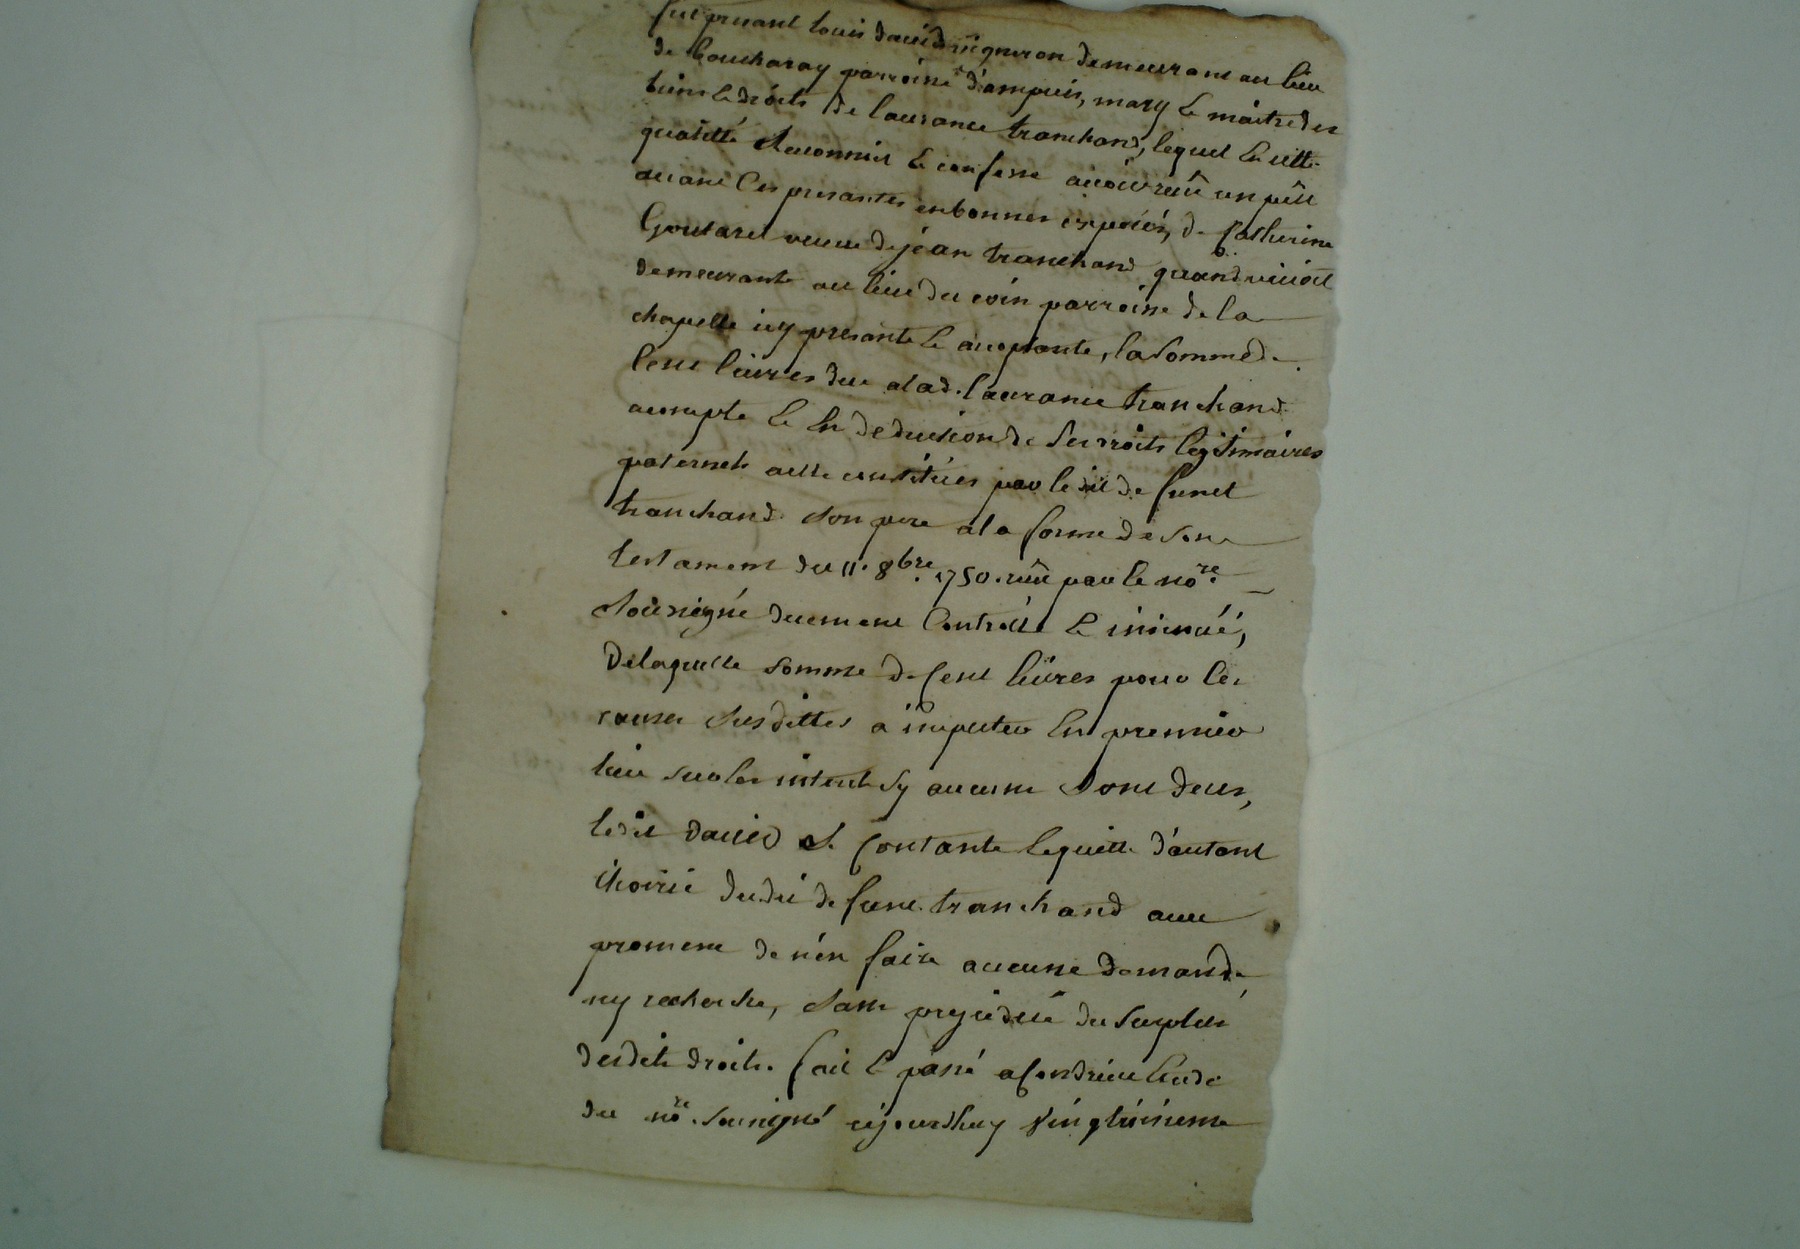 fut presant louis david vigneron demeurant au lieu
de boucharay parroisse d'ampuis, mary & maitre des
biens & droits de laurance tranchand, lequel en cette
qualitté Reconnoit & confesse avoir reçû un peu
avant Ces presantes en bonnes espesses, de Catherine
Goutarel veuve de jéan tranchand quand vivoit
demeurante au lieu du coin parroisse de la
chapelle icy presante & acceptante, la somme de
Cent livres due a lad. laurance tranchand
acompte & En deduction de ses droits legitimaires
paternels a elle constitués par le dit defunct
tranchand son pere a la forme de son
testament du 11. 8bre. 1750. reçû par le nore.
Soussigné deument Controllé & insinué,
De laquelle somme de Cent livres pour les
causes susdittes a imputer En premier
lieu sur les interets sy aucuns sont deus,
ledit david Se Contante & quitte d'autant
l'hoirie dudit defunt tranchand avec
promesse de n'en faire aucune demande
ny recherche, sans prejudice du surplus
desdits droits. fait & passé a Condrieu Etude
du nore. soussigné cejourdhuy vingtroisieme